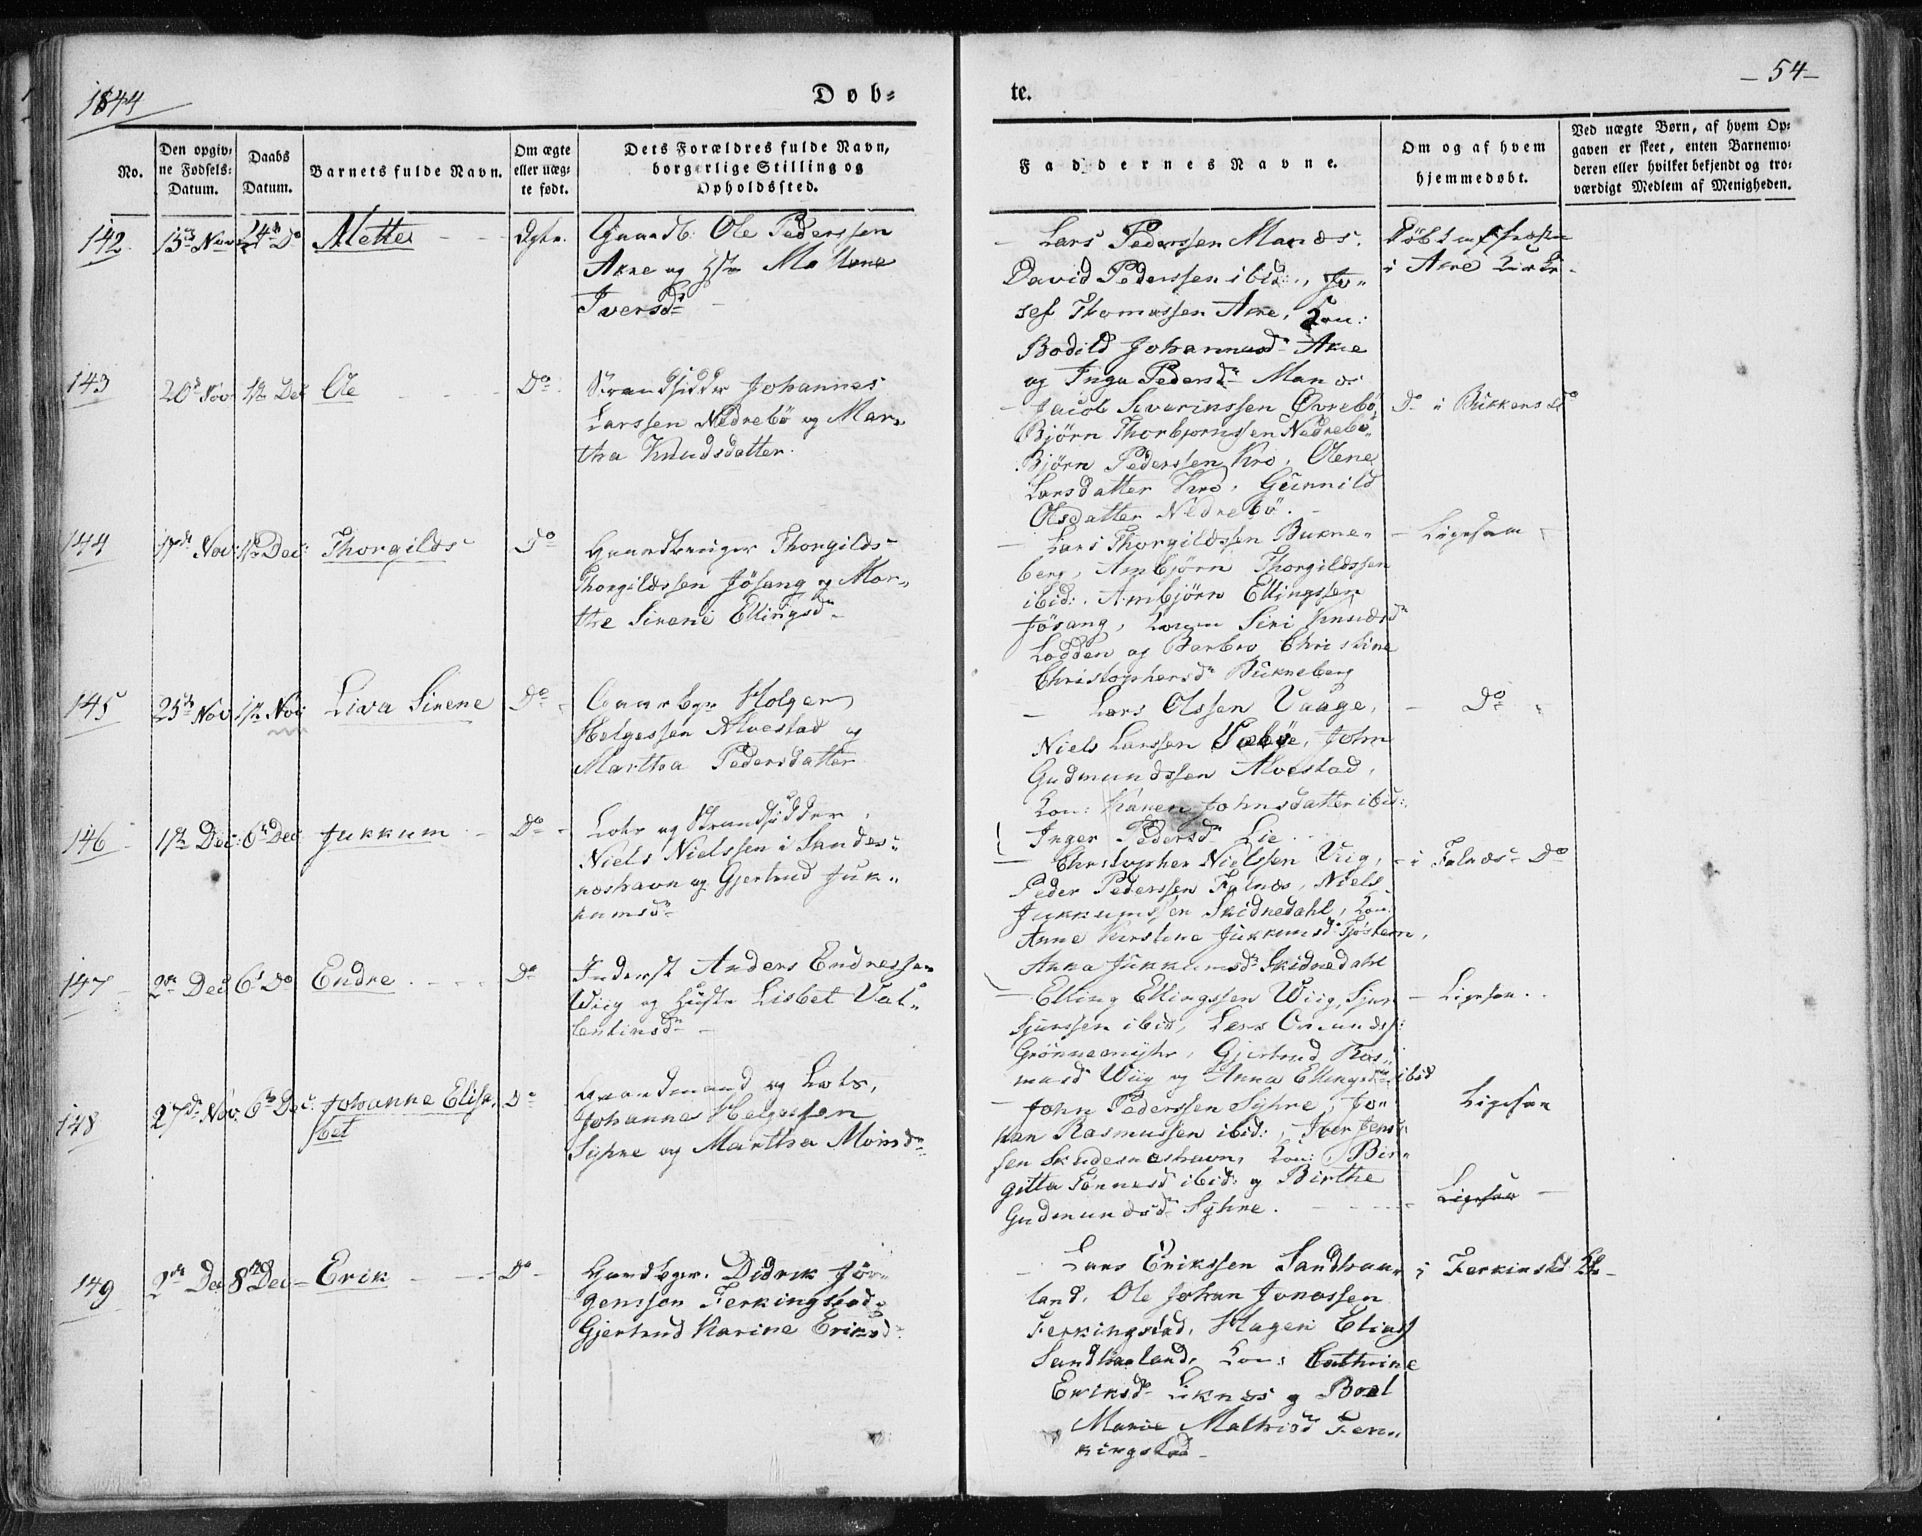 1844
Døb-
te.
- 54 -
No.
Den opgiv-
ne Fødsels-
Datum.
Daabs
Datum.
Barnets fulde Navn.
Om ægte
eller uæg-
te født.
Dets Forældres fulde Navn,
borgerlige Stilling og
Opholdssted.
Faddernes Navne.
Om og af hvem
hjemmedøbt.
Ved uægte Børn, af hvem Op-
gaven er skeet, enten Barnemo-
deren eller hvilket bekjendt og tro-
værdigt Medlem af Menigheden.
142. 13de Nov 24de Do Mette - - Ægte.
Gaardb. Ole Pederssen
Akre og Hstr
Iversdr -
- Lars Pederssen Manæs.
David Pederssen ibid:, Jo-
sef Thomassen Akre, Kon:
Bodild Johannesdr Akre
og Inga Pedersdr Manæs
Døbt
i Akre Kirke -
143 20de Nov 1ste Dec Ole - - - Do.
Strandsidder Johannes
Larssen Nedrebö og Mar-
tha Knudsdatter.
- Jacob Severinssen Øvrebö
Björn Thorbjornssen Nedrebö
Björn Pederssen Kro, Olene
Larsdatter Kro, Gunnild
Olsdatter Nedrebö. -
Do i
144 17de Nov: 1ste Dec: Thorgilds Do
Thorgilds
Thorgildssen Jösang og Mar-
the Sirene Ellingsdr
- Lars Thorgildssen Bukne-
berg, Ambjörn Thorgildssen
ibid:. Ambjörn Ellingssen
Jösang, Konen Siri Knudsdr
Lodden og Barbro Christine
Christophersdr Bukneberg
- Ligesaa
145 25de Nov 1ste Nov Liva Sirene Do -
Gaardbgr Holger
Helgessen Alvestad og
Martha Pedersdatter
- Lars Olssen Vaage,
Niels Larssen Sæböe, John
Gudmundssen Alvestad,
Kon: Karen Johnsdatter ibid:
Inger Pedersdr Lie
- Do
146 1ste Dec: 6te Dec Jukkum - Do -
Lods og Strandsidder
Niels Nielssen i Skudes-
neshavn og Gjertrud Juk-
kumsdr
- Christopher Nielssen Viig,
Peder Pederssen Falnæs, Niels
Jukkumssen Skidnedahl, Kon:
Anne Kirstine Jukkumsdr
Anna Jukkumsdr Skidnedahl
- i Falnæs Do
147 - 2de Dec 6te Do Endre - - - Do
Inderst Anders Endressen
Wiig og Hustr Lisbet Val-
lentinsdr -
- Elling Ellingssen Wiig, Sjur
Sjurssen ibid, Lars
Grönnemyhr, Gjertrud Ras-
musd Wiig og Anna Ellingsdr ibid
- Ligesaa.
148 27de Nov. 6te Dec: Johanne Elisa- Do
bet
Gaardmand og Lods,
Johannes Helgessen
Syhre og Martha Monsdr
- John Pederssen Syhre, Jo-
han Rasmussen ibid:, Iver Jens-
sen Skudesneshavn, Kon: Bir-
gitta Tonnesd ibid: og Birthe
Gudmundsdr Syhre. - - -
Ligesaa
Ligesaa -
149 2de Dec 8de Dec - Erik - - - Do -
Gaardbgr. Didrik Jör-
genssen Ferkingstad og
Gjertrud Karine Eriksdr
- Lars Erikssen Sandhaa-
land, Ole Johan Jonassen
Ferkingstad, Hagen Eliass
Sandhaaland, Kon: Cathrine
Eriksdr Liknes og Boel
Marie Mathisd Fer-
kingstad -
i Ferkinsted Kke -